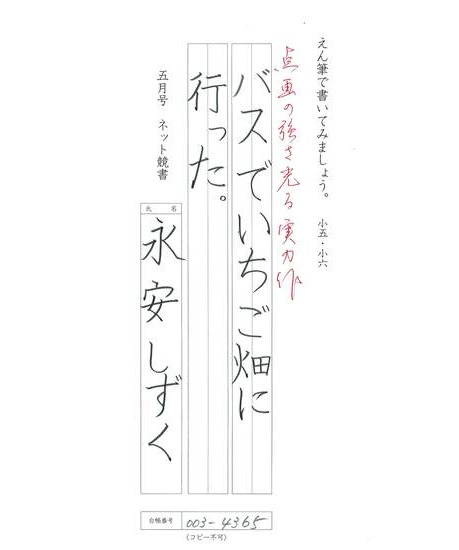 えん筆で書いてみましょう。 小五・小六
点画の強さ光る実力作
バスでいちご畑に
行った。
五月号 ネット競書
氏名
永安しずく
台帳番号 003-4365
(コピー不可)